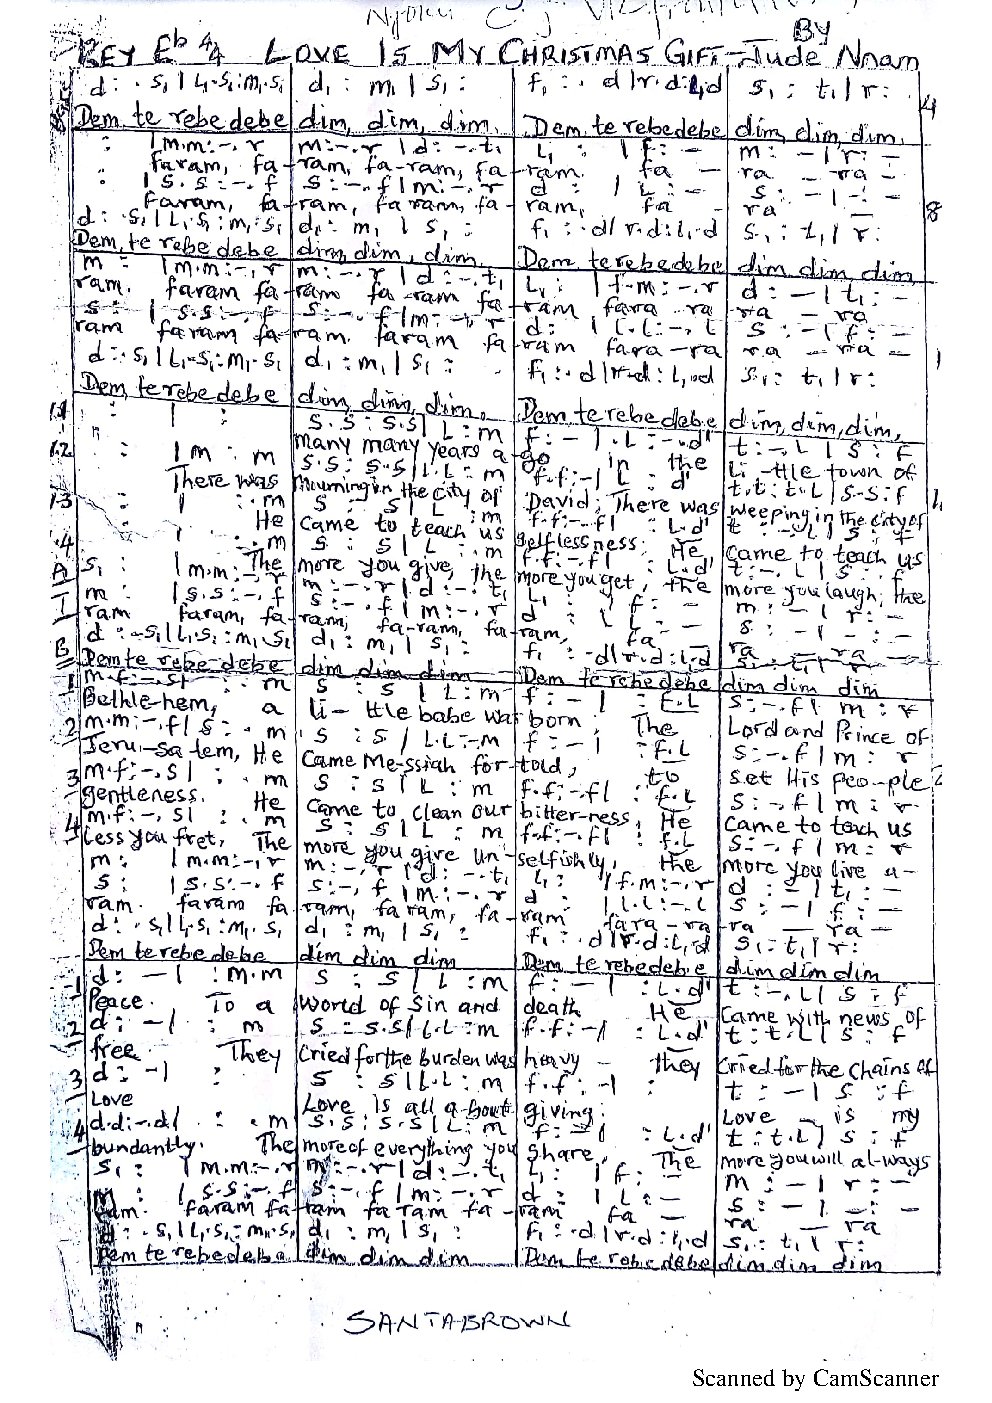 Njoku C. J.
BY
KEY Eb 4/4 LOVE IS MY CHRISTMAS GIFT - Jude Nnam
d : . s₁ | L₁.s₁ : m₁.s₁ d₁ : m₁ | s₁ : f₁ : . d | r.d : L₁.d s₁ : t₁ | r : 4
Dem, te rebe debe dim, dim, dim. Dem te rebe debe dim, dim, dim.
: | m.m : -. r m : -. r | d : -. t₁ L₁ : | f : - m : - | r : -
faram, fa - ram, fa-ram, fa-ram. fa - ra - ra -
: | s.s : -. f s : -. f | m : -. r d : | L : - s : - | - : -
faram, fa-ram, faram, fa-ram, fa - ra - 8
d : . s₁ | L₁.s₁ : m₁.s₁ d₁ : m₁ | s₁ : f₁ : . d | r.d : L₁.d s₁ : t₁ | r :
Dem, te rebe debe dim, dim, dim. Dem te rebe debe dim, dim, dim,
m : | m.m : -. r m : -. r | d : -. t₁ L₁ : | f.m : -. r d : - | t₁ : -
ram. faram fa-ram fa-ram fa-ram fara-ra ra - ra
s : | s.s : -. f s : -. f | m : -. r d : | L.L : -. L s : - | f : -
ram faram fa-ram. faram fa-ram fara-ra ra - ra -
d : . s₁ | L₁.s₁ : m₁.s₁ d₁ : m₁ | s₁ : f₁ : . d | r.d : L₁.d s₁ : t₁ | r :
Dem, te rebe debe dim, dim, dim, Dem te rebe debe dim, dim, dim,
1.1 : | : s.s : s.s | L : m f : - | . L : -. d' t : -. L | s : f
many many years a-go in the li-ttle town of
1.2 : | m : m s.s : s.s | L.L : m f.f : - | L : d' t.t : t.L | s.s : f
There was mourning in the city of David; There was weeping in the city of
1.3 : | : . m s : s | L : m f.f : -. f | : L.d' t : -. L | s : f
He came to teach us selflessness: He came to teach us
.4 : . m s : s | L : m f.f : -. f | : L.d' t : -. L | s : f
The more you give, the more you get, the more you laugh, the
A s₁ : | m.m : -. r m : -. r | d : -. t₁ L₁ : | f : - m : - | r : -
I m : | s.s : -. f s : -. f | m : -. r d : | L : - s : - | - : -
ram faram, fa-ram, fa-ram, fa-ram, fa - ra - ra -
B d : . s₁ | L₁.s₁ : m₁.s₁ d₁ : m₁ | s₁ : f₁ : . d | r.d : L₁.d s₁ : t₁ | r
Dem te rebe debe dim dim dim Dem te rebe debe dim dim dim
1 m.f : -. s | : . m s : s | L : m f : - | : f.L s : -. f | m : r
Bethle-hem, a li-ttle babe was born: The Lord and Prince of
2 m.m : -. f | s : . m s : s | L.L : -. m f : - | : f.L s : -. f | m : r
Jeru-salem, He came Me-ssiah for-told; to set His peo-ple
3 m.f : -. s | : . m s : s | L : m f.f : -. f | : f.L s : -. f | m : r
gentleness. He came to clean our bitter-ness, He came to teach us
4 m.f : -. s | : . m s : s | L : m f.f : -. f | : f.L s : -. f | m : r
less you fret, The more you give un-selfishly, the more you live a-
m : | m.m : -. r m : -. r | d : -. t₁ L₁ : | f.m : -. r d : - | t₁ : -
s : | s.s : -. f s : -. f | m : -. r d : | L.L : -. L s : - | f : -
ram. faram fa-ram, faram, fa-ram fara-ra-ra - ra -
d : . s₁ | L₁.s₁ : m₁.s₁ d₁ : m₁ | s₁ : f₁ : . d | r.d : L₁.d s₁ : t₁ | r :
Dem te rebe debe dim dim dim Dem te rebe debe dim dim dim
1 d : - | : m.m s : s | L : m f : - | : L.d' t : -. L | s : f
Peace. To a World of Sin and death He Came with news of
2 d : - | : m s : s.s | L.L : m f.f : - | : L.d' t : t.L | s : f
free. They Cried for the burden was heavy - they Cried for the chains of
3 d : - | : s : s | L.L : m f.f : - | : t : - | s : f
Love Love is all a-bout giving: Love - is my
4 d.d : -. d | : . m s.s : s.s | L : m f : - | : L.d' t : t.L | s : f
bundantly. The more of everything you share, The more you will al-ways
s₁ : | m.m : -. r m : -. r | d : -. t₁ L₁ : | f : - m : - | r : -
m : | s.s : -. f s : -. f | m : -. r d : | L : - s : - | - : -
ram. faram fa-ram fa ram fa-ram fa - ra - ra
d : . s₁ | L₁.s₁ : m₁.s₁ d₁ : m₁ | s₁ : f₁ : . d | r.d : L₁.d s₁ : t₁ | r :
Dem te rebe debe dim dim dim Dem te rebe debe dim dim dim
SANTABROWN
Scanned by CamScanner